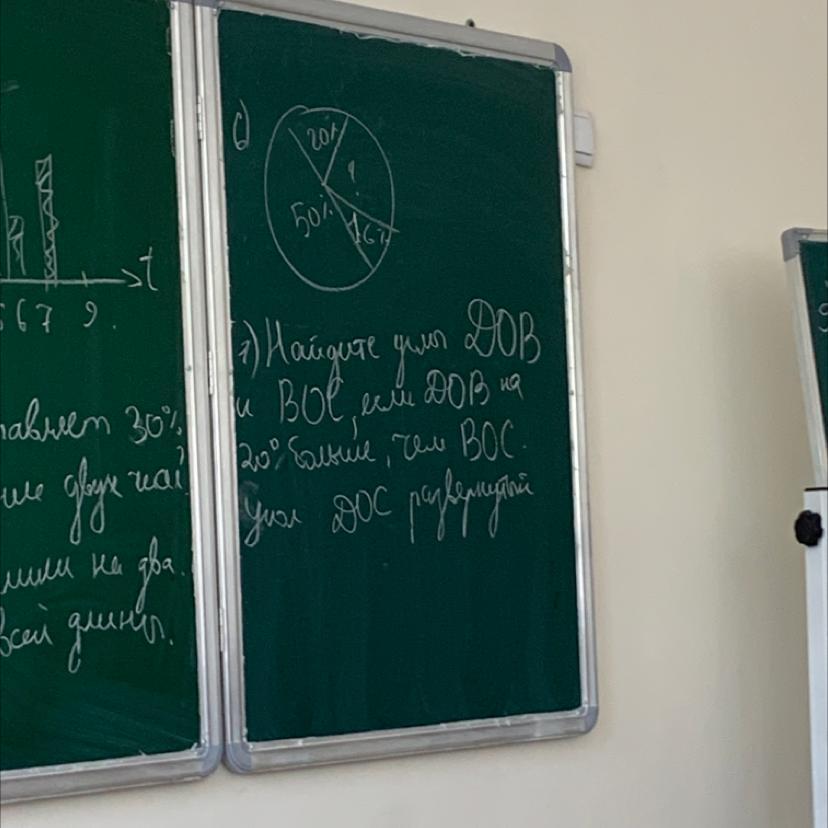 t
6 7 9.
30%
двух
на два.
всей длины.
6)
20%
?
50%
16%
7) Найдите углы DOB
и BOC, если DOB на
20° больше, чем BOC.
Угол DOC развернутый